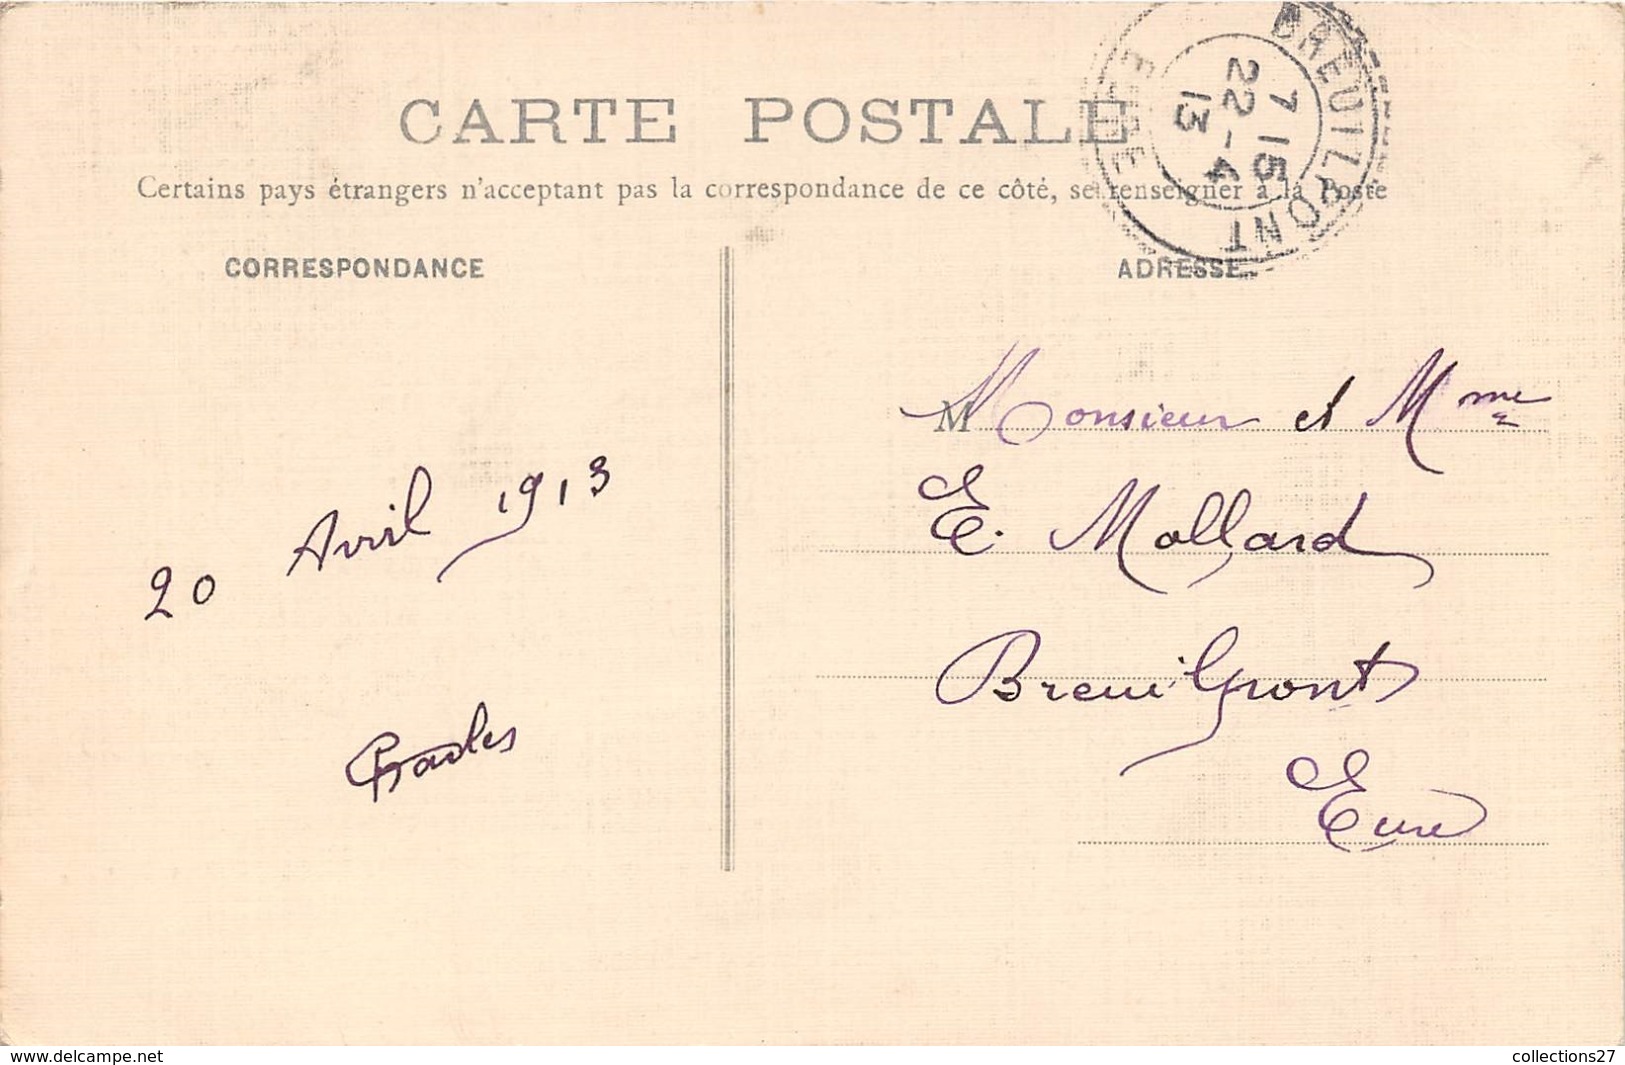 CARTE POSTALE
Certains pays étrangers n'acceptant pas la correspondance de ce côté, se renseigner à la Poste
BREUILPONT
7 15
22 - 4
13
EURE
CORRESPONDANCE
20 Avril 1913
Charles
ADRESSE
Monsieur et Mme
E. Mollard
Breuilpont
Eure
www.delcampe.net
collections27